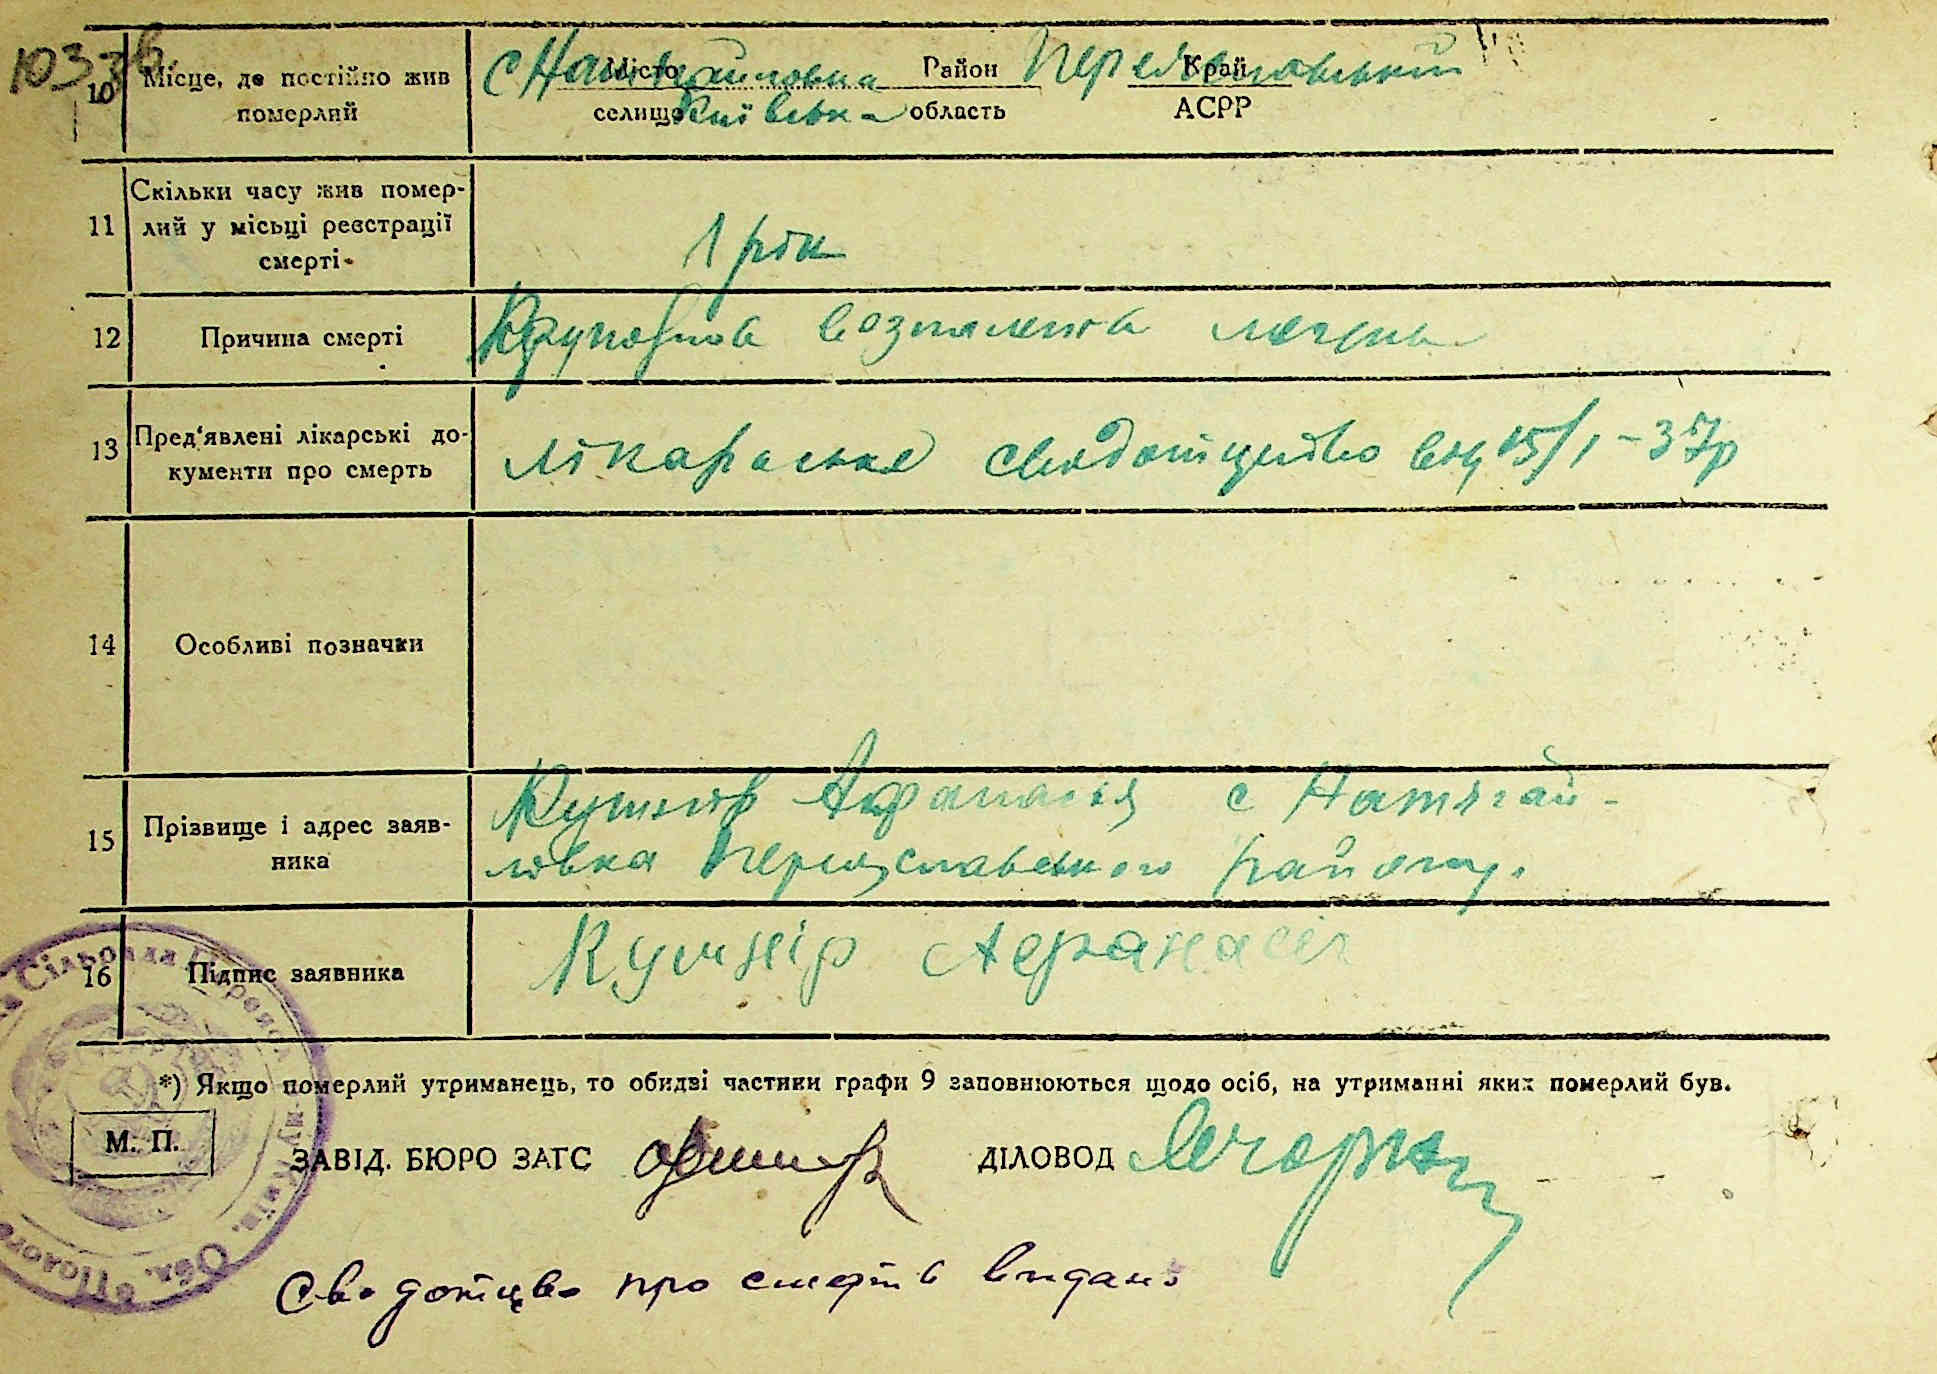 103зв.
10 Місце, де постійно жив померлий
Місто селище
Район область
Край АСРР
с Натягайловка Переяславський
Київська
11 Скільки часу жив помер-
лий у місьці реєстрації
смерті.
1 рік
12 Причина смерті
Крупозная возпаления
13 Пред'явлені лікарські до-
кументи про смерть
лікарське від 15/I-37р
14 Особливі позначки
15 Прізвище і адрес заяв-
ника
Кушнір Афанасія с Натягай-
ловка Переяславського району.
16 Підпис заявника
Кушнір Афанасій
*) Якщо померлий утриманець, то обидві частини графи 9 заповнюються щодо осіб, на утриманні яких померлий був.
М. П.
ЗАВІД. БЮРО ЗАГС
ДІЛОВОД
про смерть видано
Сільрада
Київ. Обл.